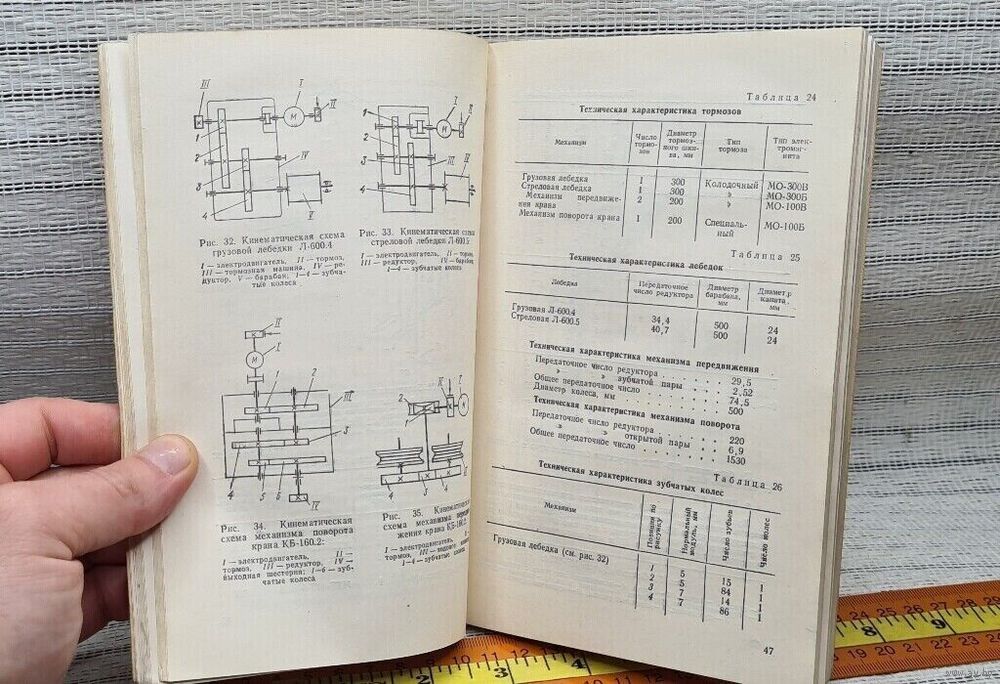 III
I
II
1
2
3
4
IV
V
M
Рис. 32. Кинематическая схема
грузовой лебедки Л-600.4
I — электродвигатель, II — тормоз,
III — тормозная машина, IV — ре-
дуктор, V — барабан; 1—4 — зубча-
тые колеса
I
II
1
2
3
4
III
IV
Рис. 33. Кинематическая схема
стреловой лебедки Л-600.5
I — электродвигатель, II — тормоз,
III — редуктор, IV — барабан;
1—4 — зубчатые колеса
II
I
M
1
2
III
3
4
5
6
IV
Рис. 34. Кинематическая
схема механизма поворота
крана КБ-160.2:
I — электродвигатель, II —
тормоз, III — редуктор, IV —
выходная шестерня; 1—6 — зуб-
чатые колеса
I
2
M
4
3
Рис. 35. Кинематическая
схема механизма передви-
жения крана КБ-160.2:
I — электродвигатель,
тормоз, III —
1—4 — зубчатые колеса
Таблица 24
Техническая характеристика тормозов
Механизм Число тормо- зов Диаметр тормоз- ного шки- ва, мм Тип тормоза Тип элек- тромаг- нита
Грузовая лебедка 1 300 Колодочный МО-300Б
Стреловая лебедка 1 300 » МО-300Б
Механизм передвиже-
ния крана 2 200 » МО-100Б
Механизм поворота крана 1 200 Специаль- МО-100Б
ный
Таблица 25
Техническая характеристика лебедок
Лебедка Передаточное число редуктора Диаметр барабана, мм Диаметр каната, мм
Грузовая Л-600.4 34,4 500 24
Стреловая Л-600.5 40,7 500 24
Техническая характеристика механизма передвижения
Передаточное число редуктора . . . . 29,5
» » зубчатой пары . . . . 2,52
Общее передаточное число . . . . . . 74,5
Диаметр колеса, мм . . . . . . . 500
Техническая характеристика механизма поворота
Передаточное число редуктора . . . . . 220
» » открытой пары . . . 6,9
Общее передаточное число . . . . . . 1530
Таблица 26
Техническая характеристика зубчатых колес
Механизм Позиции по рисунку Нормальный модуль, мм Число зубьев Число колес
Грузовая лебедка (см. рис. 32) 1 5 15 1
2 5 84 1
3 7 14 1
4 7 86 1
47